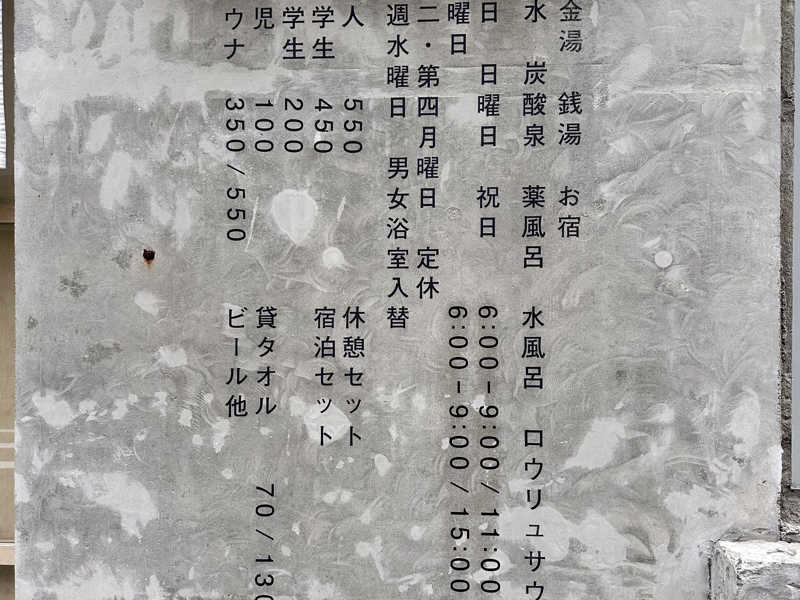 金湯 銭湯 お宿
水 炭酸泉 薬風呂 水風呂 ロウリュサウ
日 日曜日 祝日 6:00-9:00/11:00
曜日 6:00-9:00/15:00
二・第四月曜日 定休
週水曜日 男女浴室入替
人 550 休憩セット
学生 450 宿泊セット
学生 200
児 100 貸タオル 70/130
ウナ 350/550 ビール他